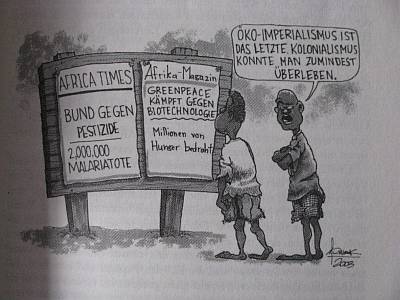 AFRICA TIMES
BUND GEGEN
PESTIZIDE
2,000.000
MALARIATOTE
"Afrika-Magazin"
GREENPEACE
KÄMPFT GEGEN
BIOTECHNOLOGIE
Millionen von
Hunger bedroht
ÖKO-IMPERIALISMUS IST
DAS LETZTE. KOLONIALISMUS
KONNTE MAN ZUMINDEST
ÜBERLEBEN.
2003